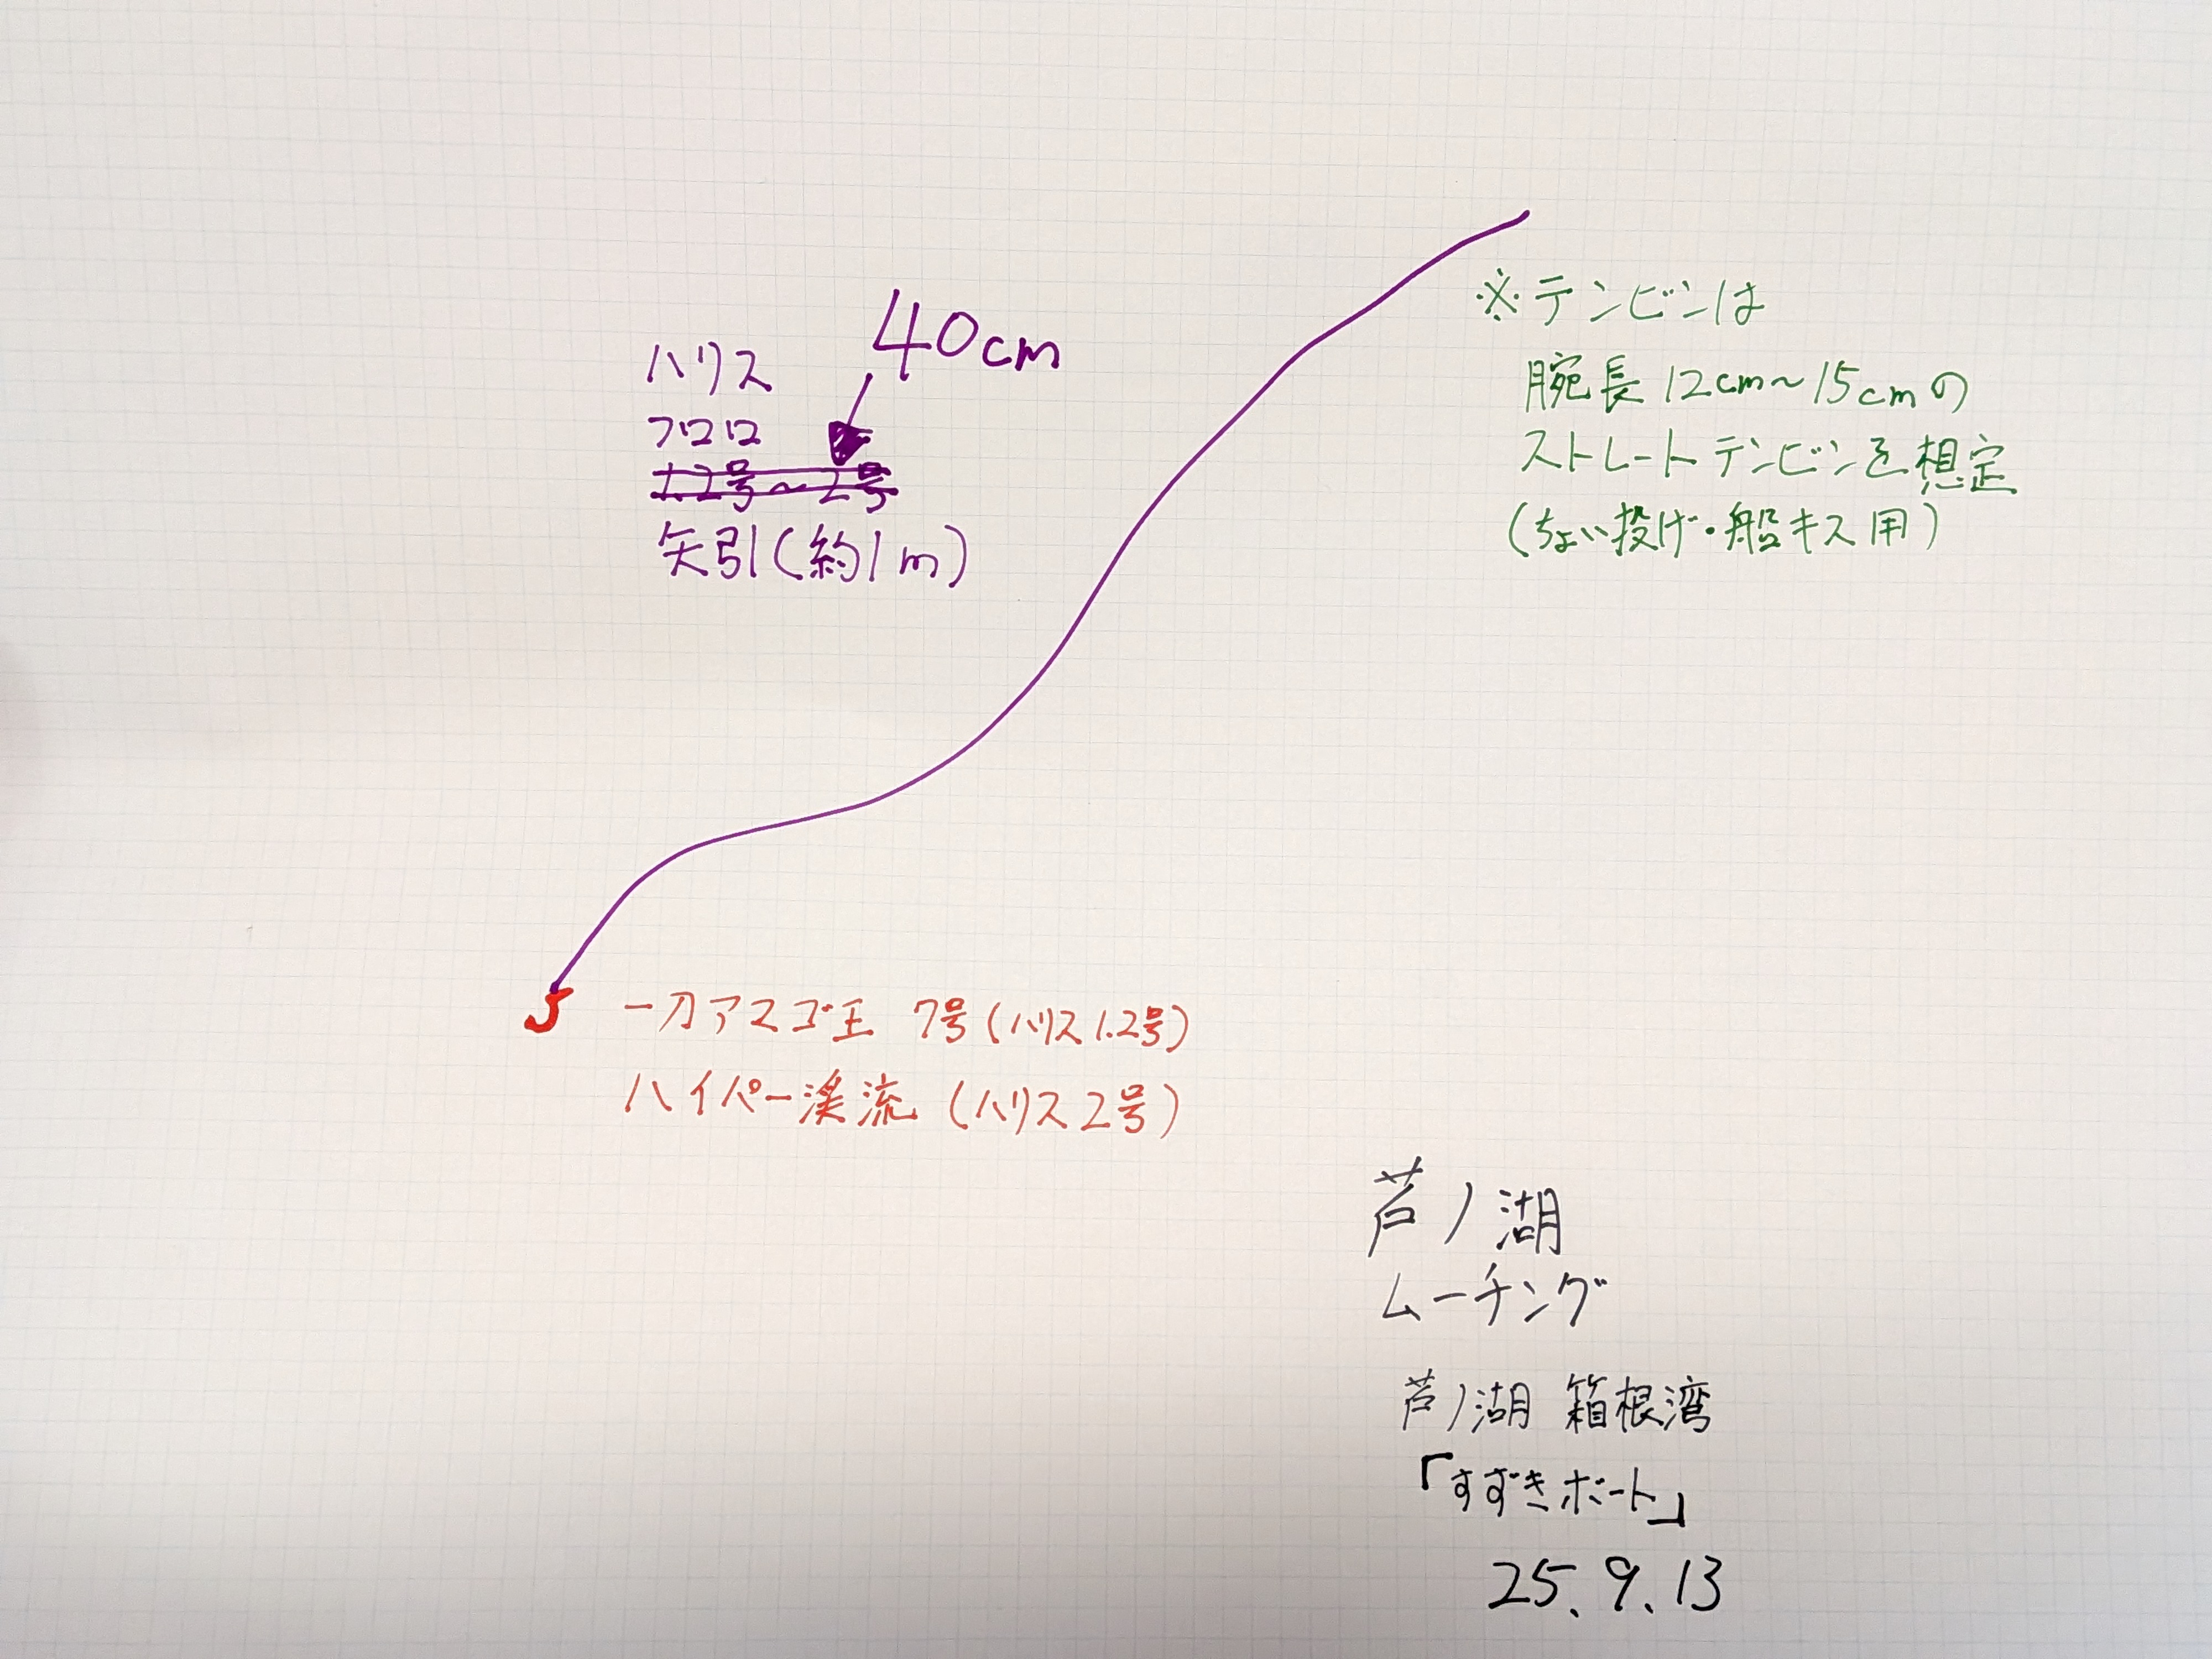 40cm
ハリス
フロロ
1.2号~2号
矢引(約1m)
※テンビンは
腕長12cm~15cmの
ストレートテンビンを想定
(ちょい投げ・船キス用)
一刀アマゴ王 7号(ハリス1.2号)
ハイパー渓流 (ハリス2号)
芦ノ湖
ムーチング
芦ノ湖 箱根湾
「すずきボート」
25.9.13